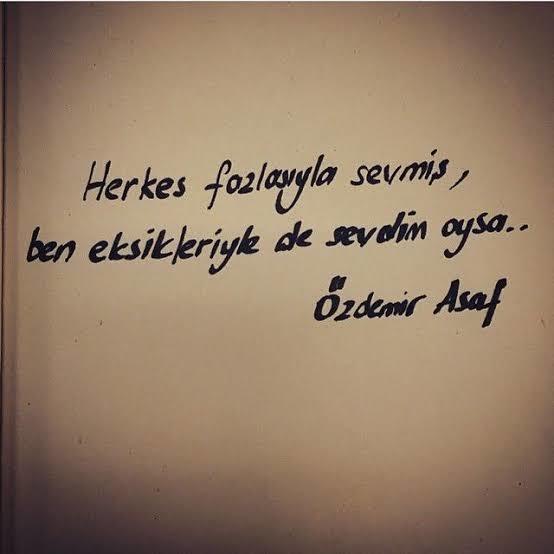 Herkes fazlasıyla sevmiş,
ben eksikleriyle de sevdim oysa..
Özdemir Asaf